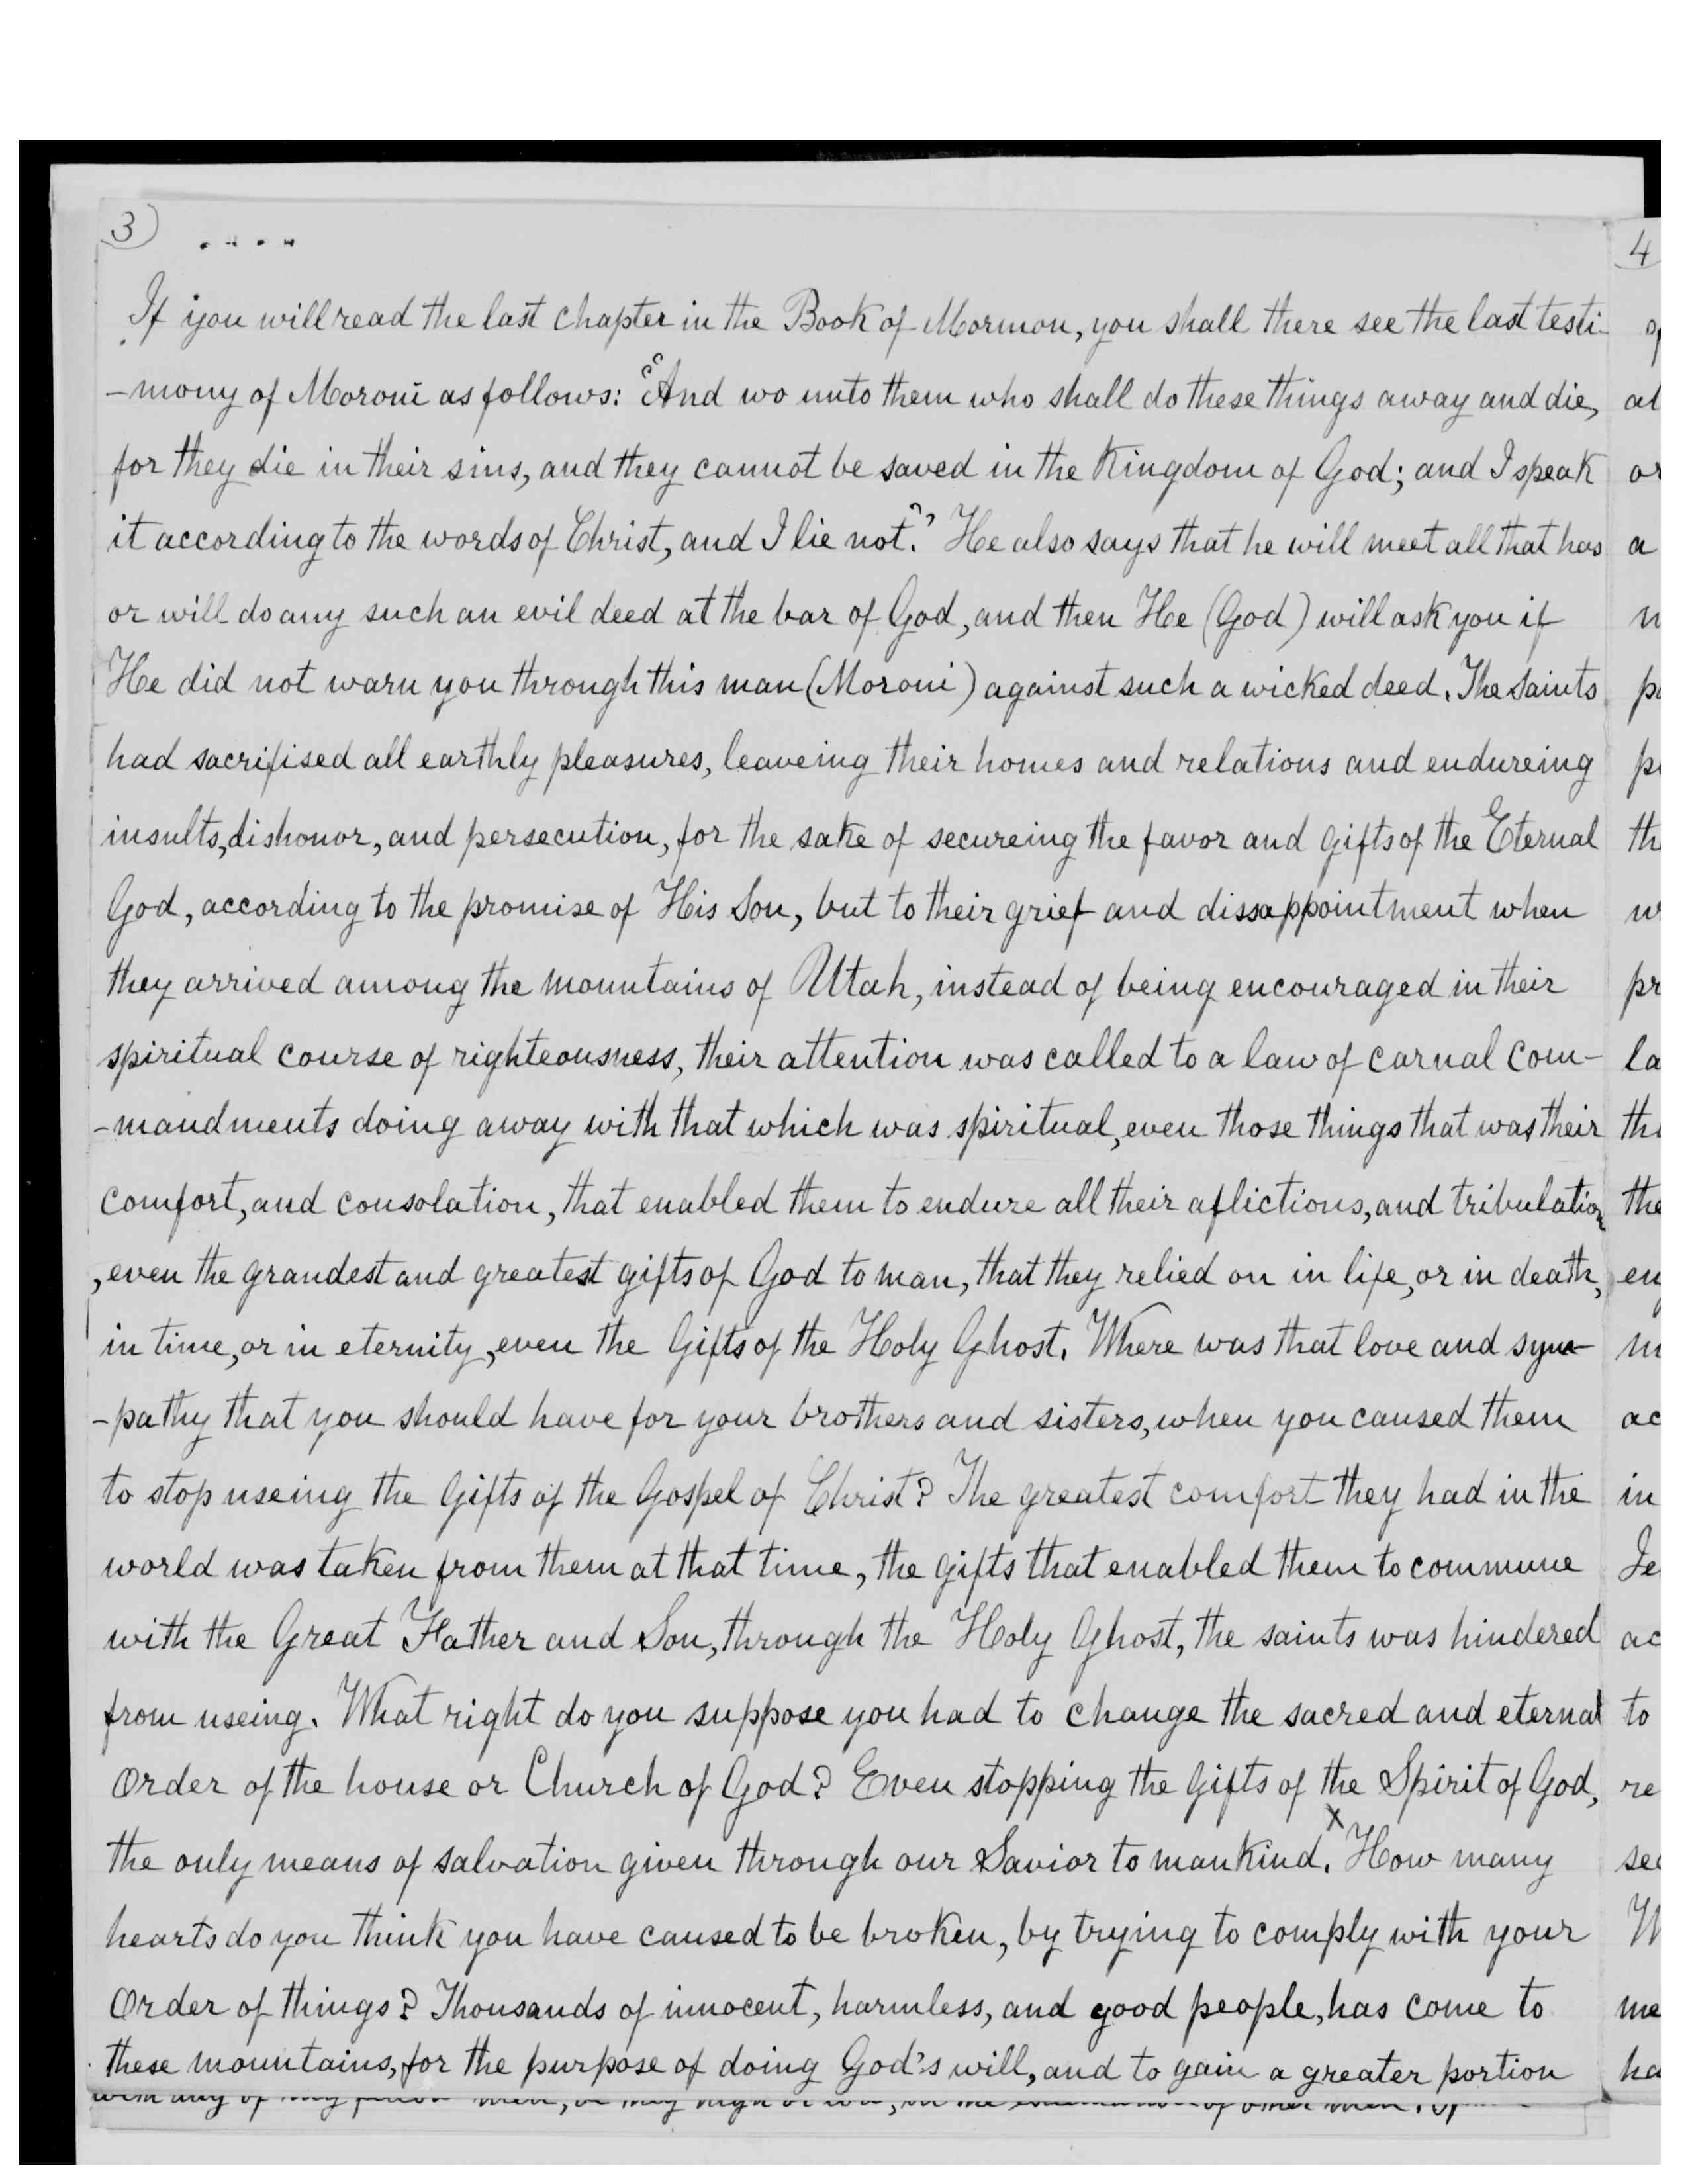 3) . . . .
If you will read the last chapter in the Book of Mormon, you shall there see the last testi-
-mony of Moroni as follows: "And wo unto them who shall do these things away and die,
for they die in their sins, and they cannot be saved in the Kingdom of God; and I speak
it according to the words of Christ, and I lie not." He also says that he will meet all that has
or will do any such an evil deed at the bar of God, and then He (God) will ask you if
He did not warn you through this man (Moroni) against such a wicked deed. The Saints
had sacrifised all earthly pleasures, leaveing their homes and relations and endureing
insults, dishonor, and persecution, for the sake of secureing the favor and gifts of the Eternal
God, according to the promise of His Son, but to their grief and dissappointment when
they arrived among the mountains of Utah, instead of being encouraged in their
spiritual course of righteousness, their attention was called to a law of carnal com-
-mandments doing away with that which was spiritual, even those things that was their
comfort, and consolation, that enabled them to endure all their aflictions, and tribulation
, even the grandest and greatest gifts of God to man, that they relied on in life, or in death,
in time, or in eternity, even the Gifts of the Holy Ghost. Where was that love and sym-
-pathy that you should have for your brothers and sisters, when you caused them
to stop useing the Gifts of the Gospel of Christ? The greatest comfort they had in the
world was taken from them at that time, the gifts that enabled them to commune
with the Great Father and Son, through the Holy Ghost, the saints was hindered
from useing. What right do you suppose you had to change the sacred and eternal
Order of the house or Church of God? Even stopping the Gifts of the Spirit of God,
the only means of salvation given through our Savior to mankind.x How many
hearts do you think you have caused to be broken, by trying to comply with your
Order of things? Thousands of innocent, harmless, and good people, has come to
these mountains, for the purpose of doing God's will, and to gain a greater portion
4
al
or
a
th
w
pr
la
the
in
Je
ac
to
re
me
ha